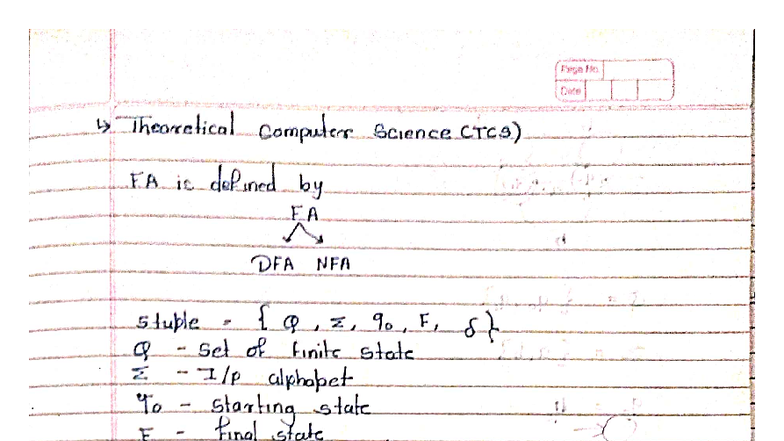 Page No.
Date
↳ Theoretical Computer Science (TCS)
FA is defined by
FA
DFA NFA
5tuple = { Q, Σ, q0, F, δ }
Q - Set of finite state
Σ - I/p alphabet
q0 - starting state
F - final state